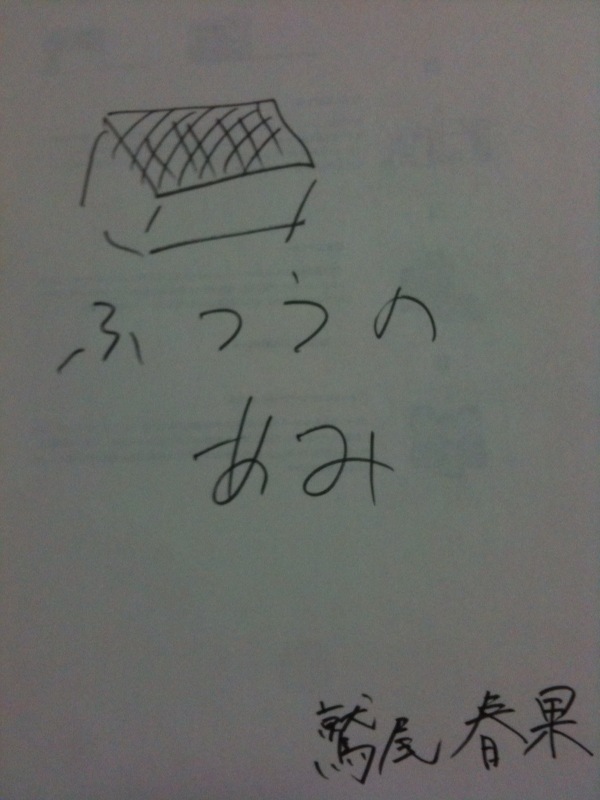 ふつうの
あみ
鷲尾春果